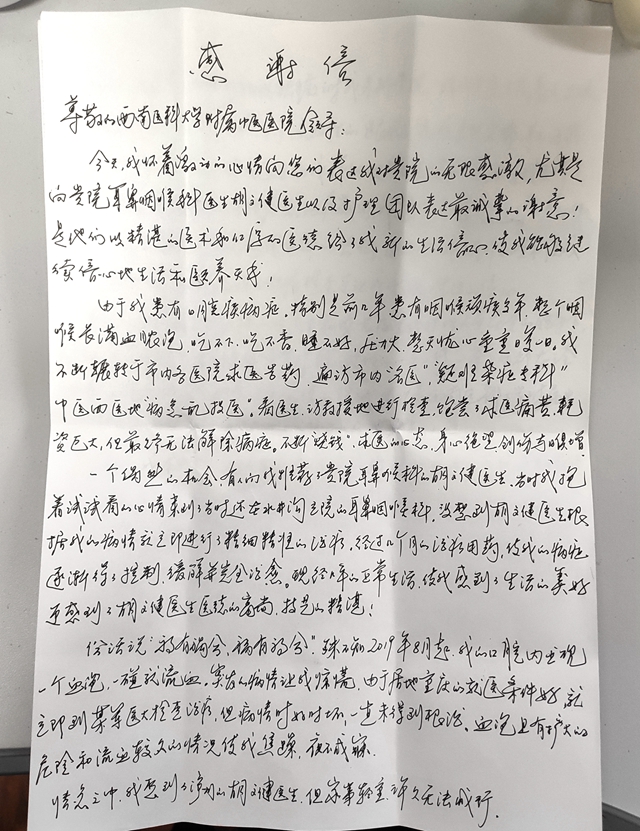 感谢信
尊敬的西南医科大学附属中医医院领导：
今天，我怀着激动的心情向您们表达我对贵院的无限感激，尤其是
向贵院耳鼻咽喉科医生胡文健医生以及护理团队表达最诚挚的谢意！
是他们以精湛的医术和仁厚的医德给了我新的生活信心，使我能够继
续信心地生活和医养天年！
由于我患有口腔疾病症，特别是前几年患有咽喉顽疾多年，整个咽
喉长满血脓泡，吃不下，吃不香，睡不好，压力大，整天忧心重重日复一日。我
不断辗转于市内各医院求医告药，遍访市内"名医"，"疑难杂症专科"
中医西医地"病急乱投医"。看医生，访教授地进行检查，饱尝了求医痛苦，耗
资巨大，但最终无法解除病症。不断"烧钱"，求医的心态，身心绝望创伤与日俱增
一个偶然的机会，有人向我推荐了贵院耳鼻喉科的胡文健医生，当时我抱
着试试看的心情来到了当时还在水井沟主院的耳鼻咽喉科，没想到胡文健医生根
据我的病情就立即进行了精细精准的治疗，经过几个月的治疗用药，使我的病症
逐渐得了控制，缓解并完全治愈。既经几年的正常生活，使我感到了生活的美好
更感到了胡文健医生医德的高尚，技足的精湛！
俗话说"福有祸兮，祸有福兮"。殊不知2019年8月起，我的口腔内出现
一个血泡，一碰就流血。突发的病情让我惊慌，由于居地重庆的就医条件好，就
立即到某军医大检查治疗，但病情时好时坏，一直未得到根治。血泡且有扩大的
危险和流血较久的情况使我焦躁，夜不成寐。
情急之中，我想到了泸州的胡文健医生，但家事轻重，许久无法成行。